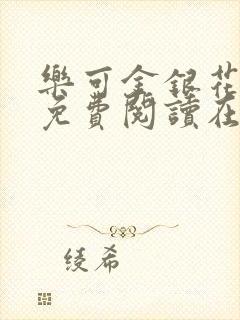 樂可金銀花
免費閱讀在
綾希